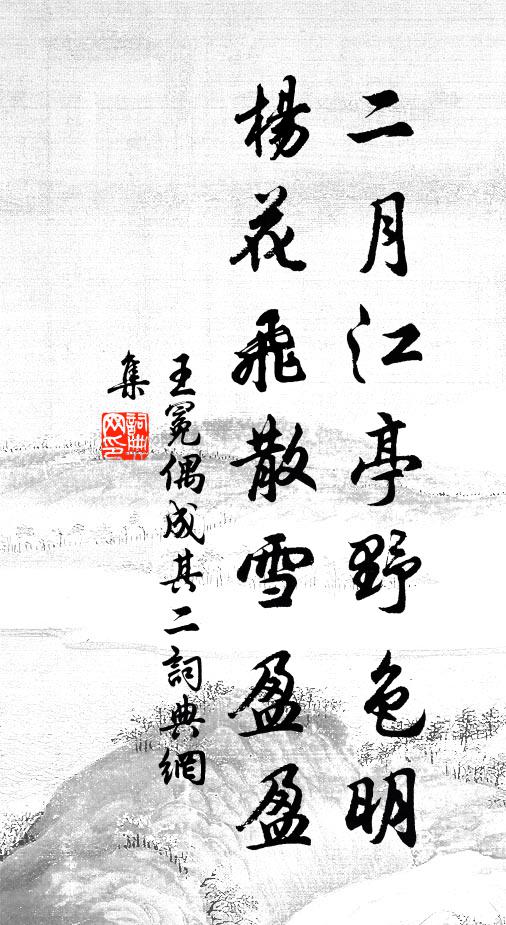 二月江亭野色明
楊花飛散雪盈盈
王冕偶成其二詞典網
集
詞典
网印